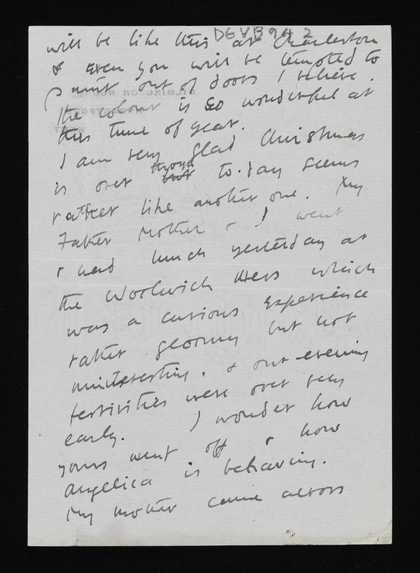 DGVB94 2
will be like this at Charleston
& even you will be tempted to
paint out of doors I believe.
The colour is so wonderful at
this time of year.
I am very glad Christmas
is over though but to-day seems
rather like another one. My
Father Mother & I went
& had lunch yesterday at
the Woolwich Mess which
was a curious experience
rather gloomy but not
uninteresting. & our evening
festivities were over very
early. I wonder how
yours went off & how
Angelica is behaving.
My mother came across